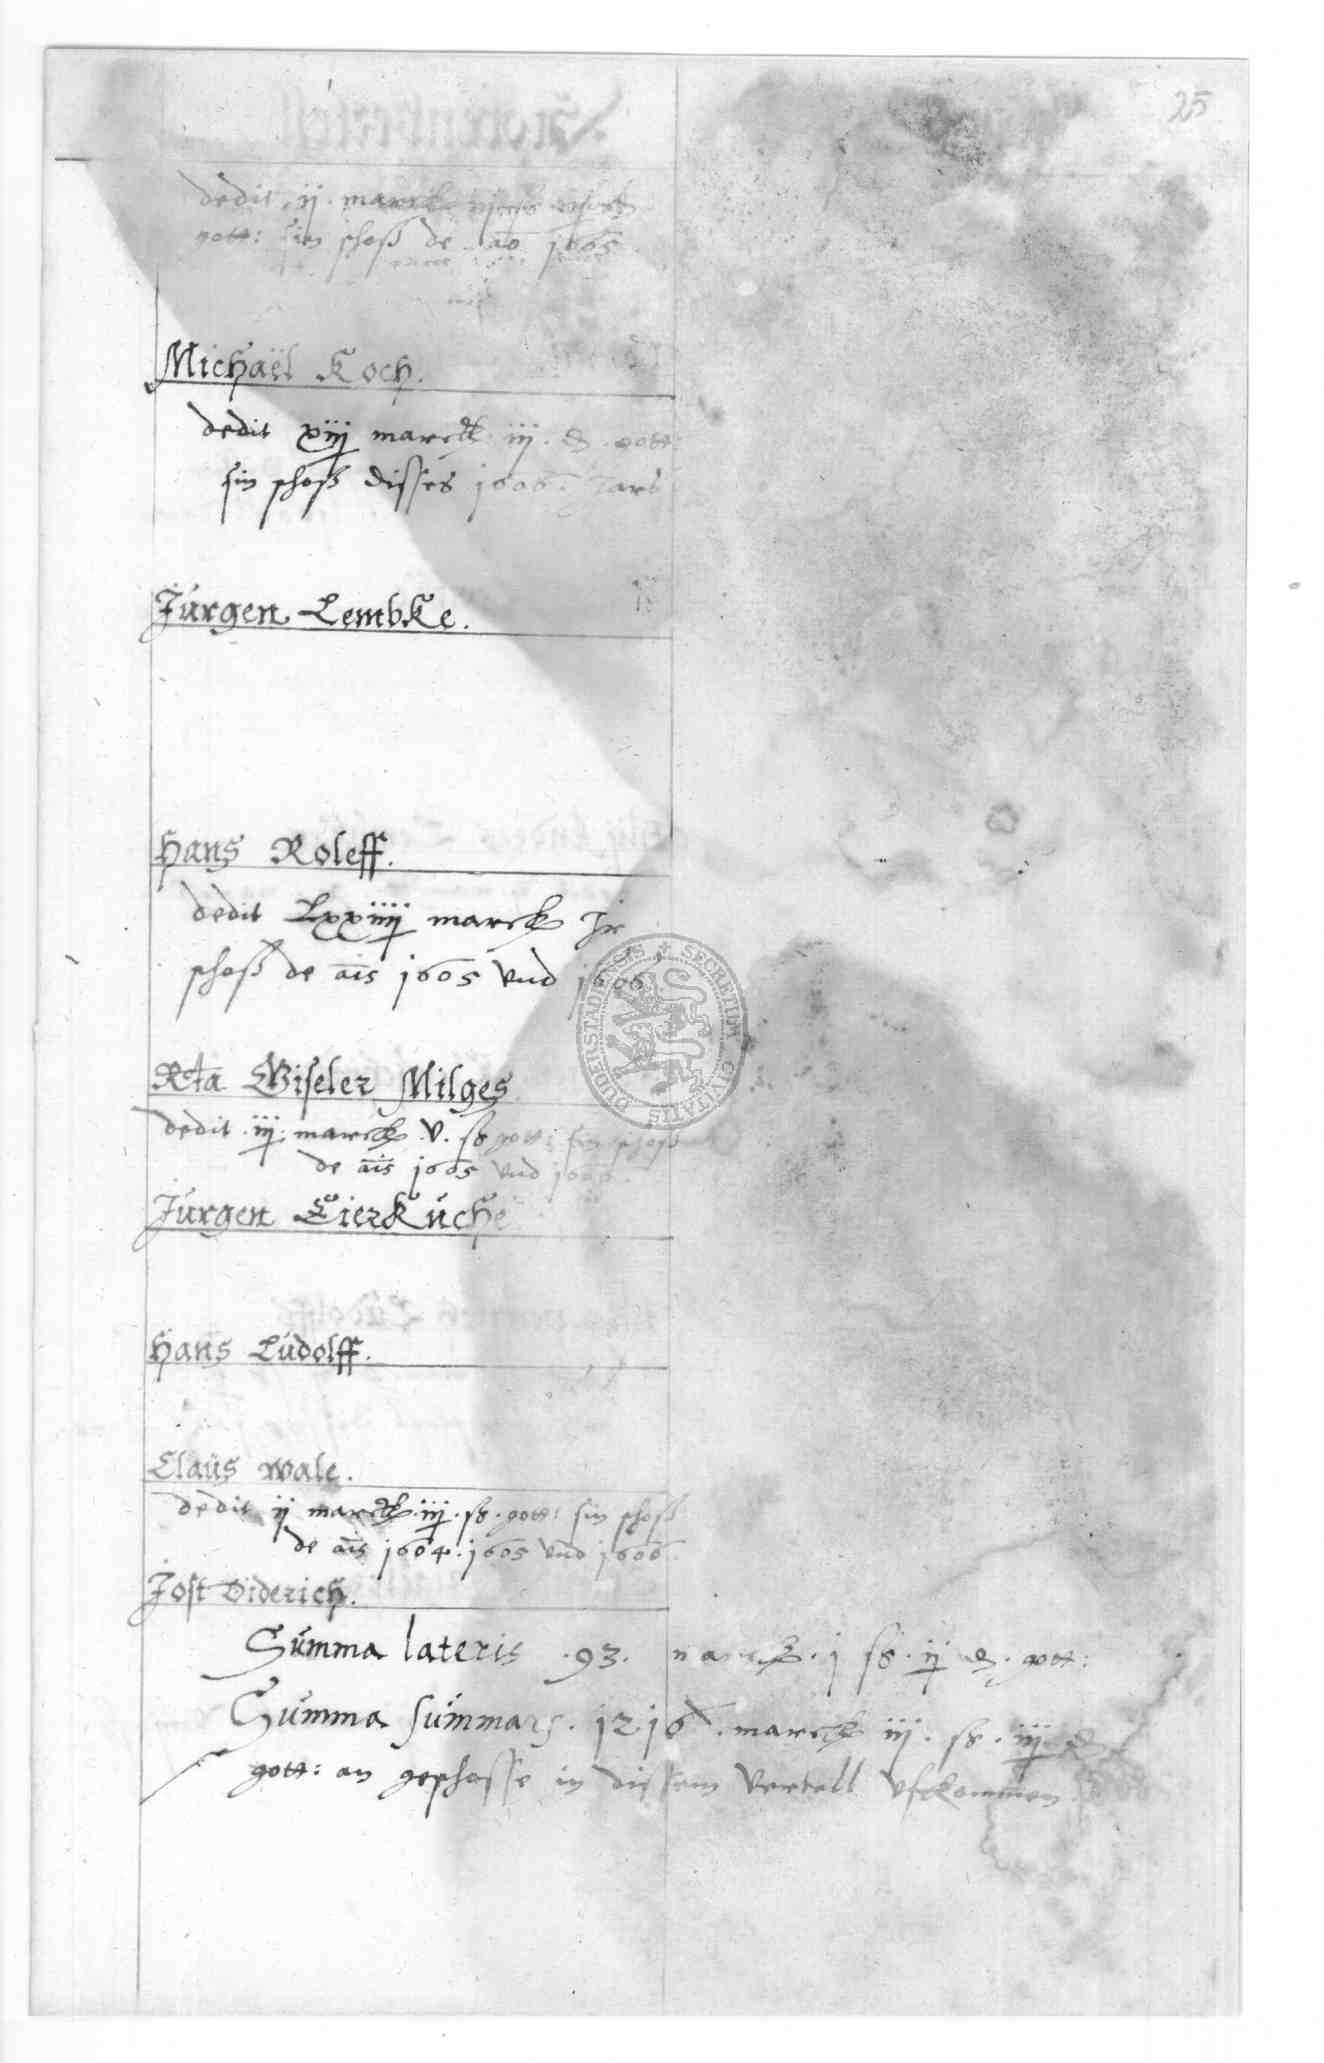 25
dedit ij marck
gott: sin schoß de ao 1605
Michaël Koch.
dedit xiij marck iij ₰ gott
sin schoß disses 1606. Jars
Jürgen Lembke.
Hans Roleff.
dedit Lxxiiij marck Jr
schoß de ais 1605 vnd 1606
Rta Giseler Milges
dedit iij marck v. ß gott: sin schoß
de ais 1605 vnd 1606.
Jürgen Eierküche
Hans Lüdolff.
Claüs wale.
dedit ij marck iij ß gott: sin schoß
de ais 1604. 1605 vnd 1606.
Jost Diderich.
Summa lateris .93. marck .j ß .ij ₰. gott:
Summa summars. 1216. marck iij. ß. iij ₰
gott: an geschosse in dissem Vertell vfkommen
DUDERSTADENSIS SECRETUM CIVITATIS